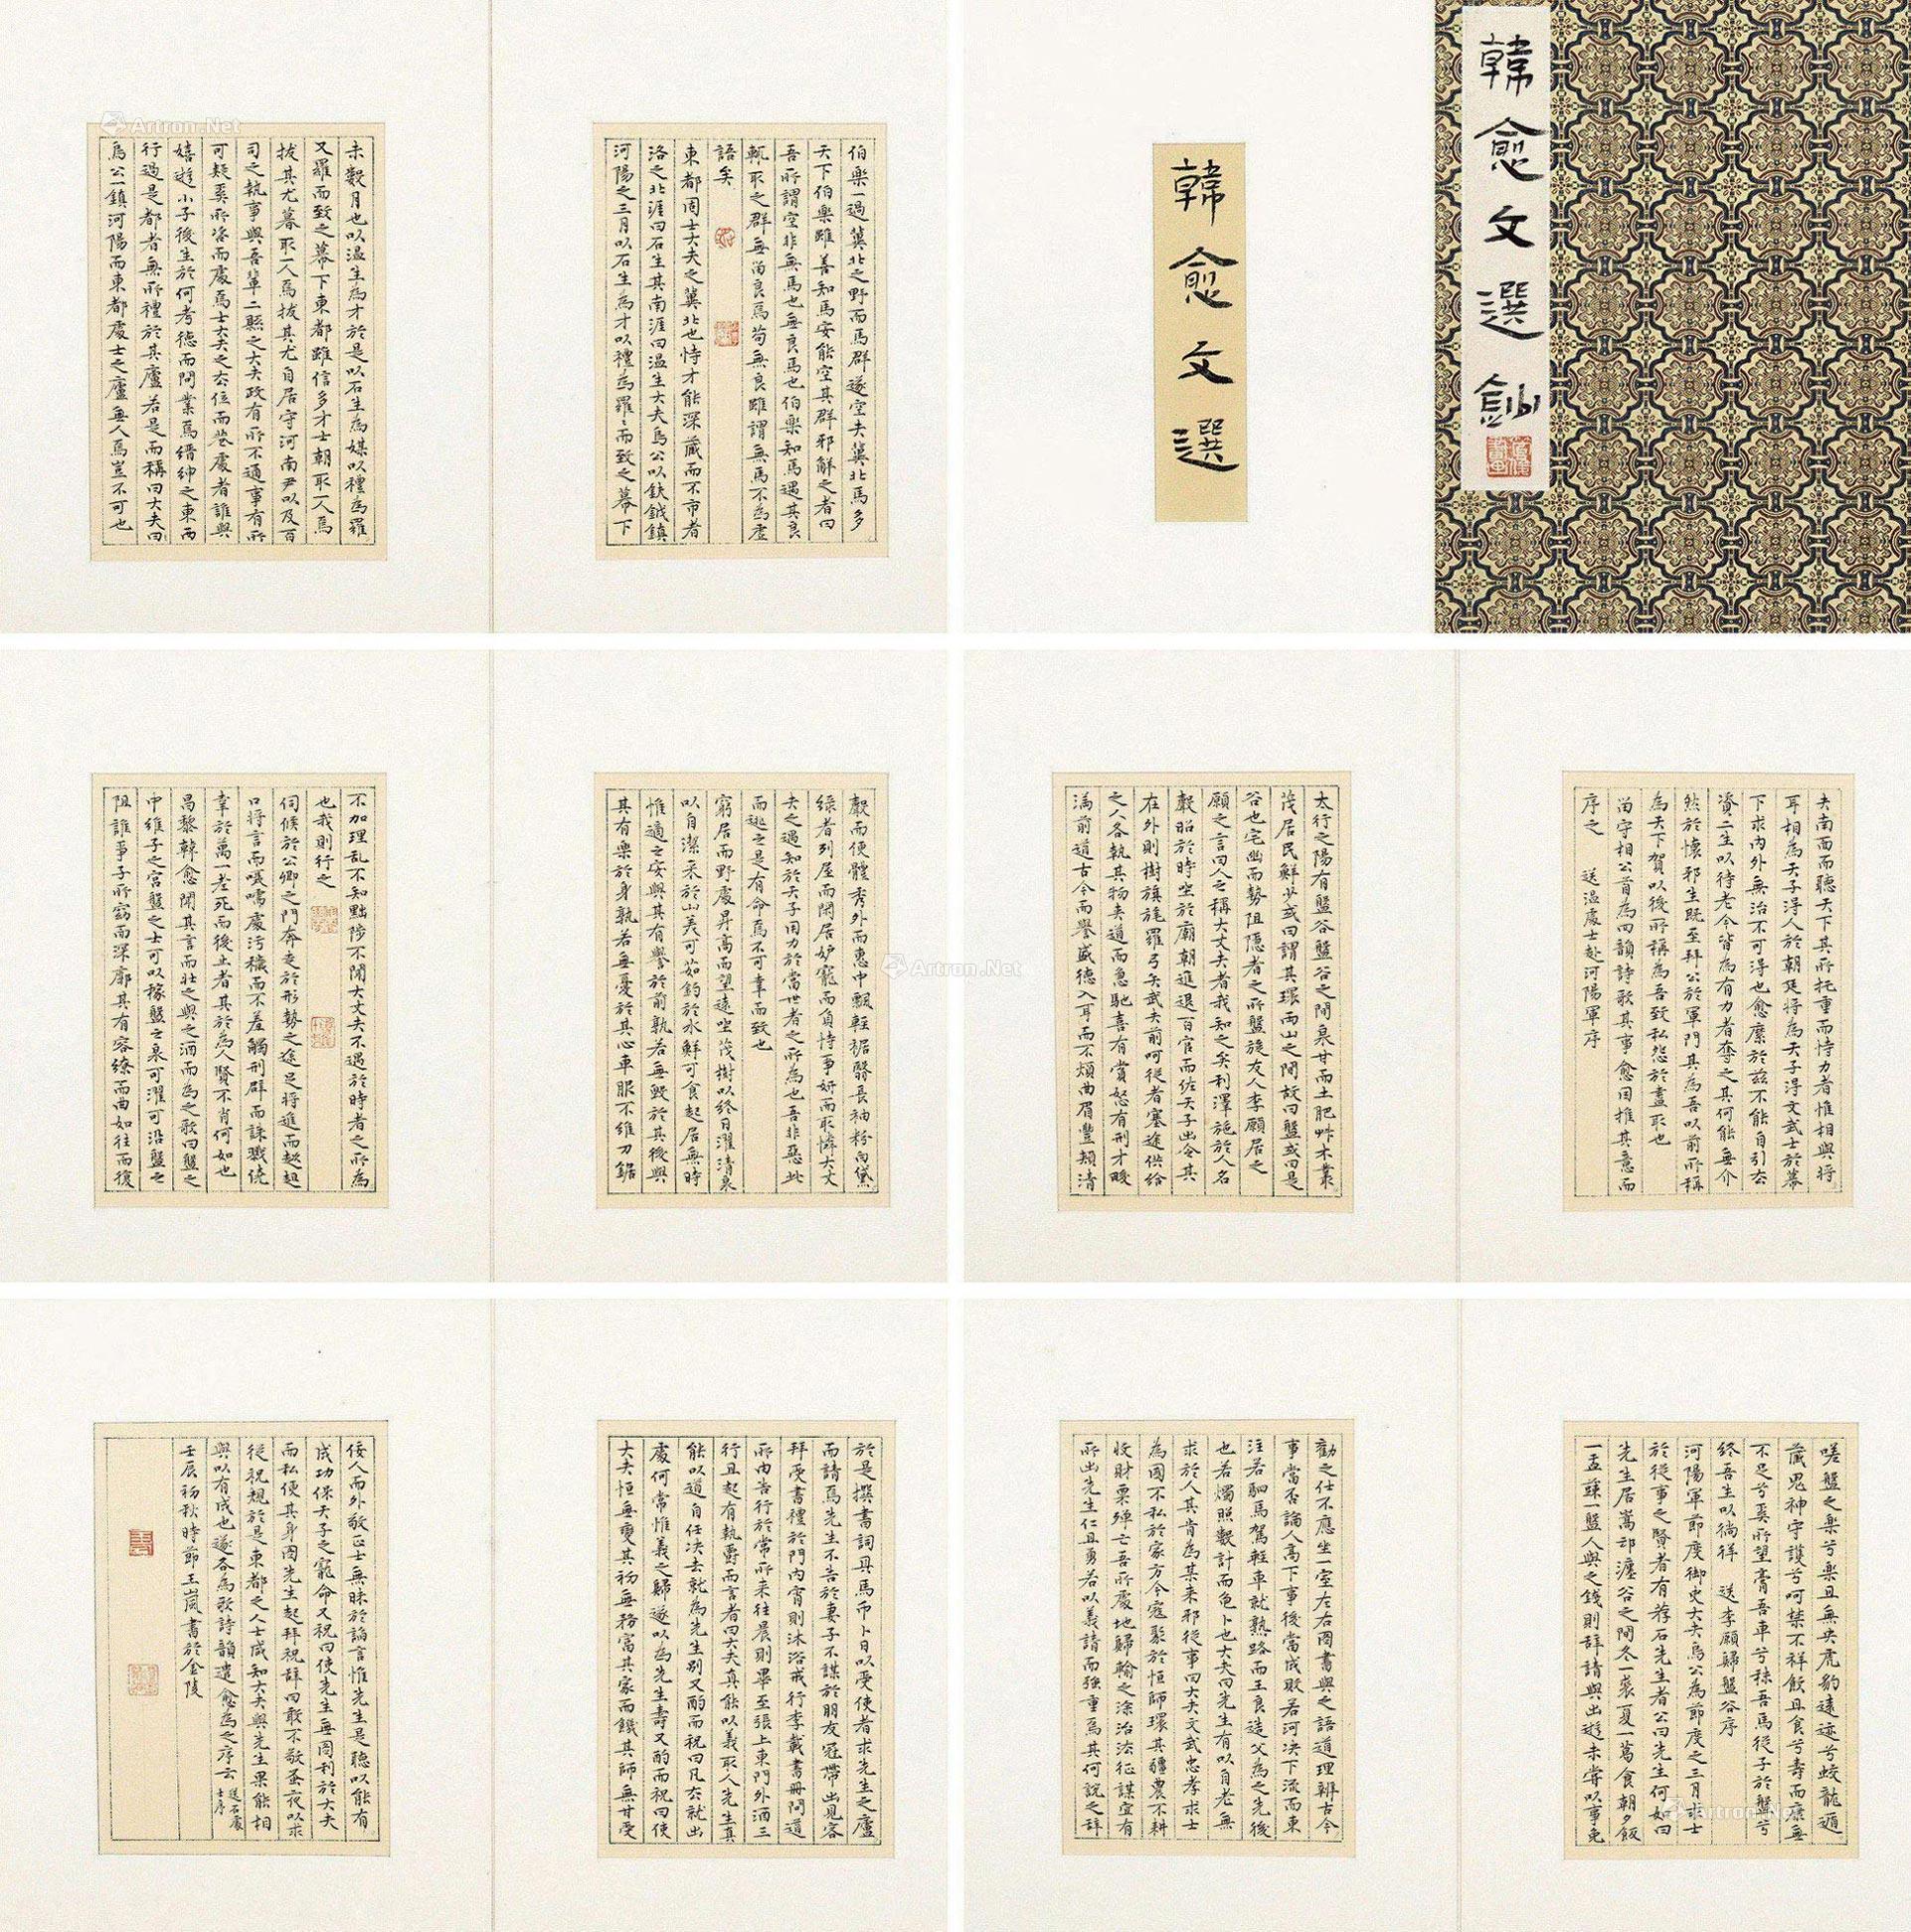 韓愈文選鈔
韓愈文選
伯樂一過冀北之野而馬群遂空夫冀北馬多
天下伯樂雖善知馬安能空其群邪解之者曰
吾所謂空非無馬也無良馬也伯樂知馬遇其良
輒取之群無留良焉苟無良雖謂無馬不為虛
語矣
東都固士大夫之冀北也恃才能深藏而不市者
洛之北涯曰石生其南涯曰溫生大夫烏公以鈇鉞鎮
河陽之三月以石生為才以禮為羅〻而致之幕下
未數月也以溫生為才於是以石生為媒以禮為羅
又羅而致之幕下東都雖信多才士朝取一人焉
拔其尤暮取一人焉拔其尤自居守河南尹以及百
司之執事與吾輩二縣之大夫政有所不通事有所
可疑奚所咨而處焉士大夫之去位而巷處者誰與
嬉遊小子後生於何考德而問業焉縉紳之東西
行過是都者無所禮於其廬若是而稱曰大夫
烏公一鎮河陽而東都處士之廬無人焉豈不可也
夫南面而聽天下其所托重而恃力者惟相與將
耳相為天子得人於朝廷將為天子得文武士於幕
下求內外無治不可得也愈縻於茲不能自引去
資二生以待老今皆為有力者奪之其何能無介
然於懷邪生既至拜公於軍門其為吾以前所稱
為天下賀以後所稱為吾致私怨於盡取也
留守相公首為四韻詩歌其事愈因推其意而
序之 送溫處士赴河陽軍序
太行之陽有盤谷盤谷之間泉甘而土肥艸木叢
茂居民鮮少或曰謂其環兩山之間故曰盤或曰是
谷也宅幽而勢阻隱者之所盤旋友人李願居之
願之言曰人之稱大丈夫者我知之矣利澤施於人名
聲昭於時坐於廟朝進退百官而佐天子出令其
在外則樹旗旄羅弓矢武夫前呵從者塞途供給
之人各執其物夾道而急馳喜有賞怒有刑才畯
滿前道古今而譽盛德入耳而不煩曲眉豐頰清
聲而便體秀外而惠中飄輕裾翳長袖粉白黛
綠者列屋而閑居妒寵而負恃爭妍而取憐大丈
夫之遇知於天子用力於當世者之所為也吾非惡此
而逃之是有命焉不可幸而致也
窮居而野處昇高而望遠坐茂樹以終日濯清泉
以自潔采於山美可茹釣於水鮮可食起居無時
惟適之安與其有譽於前孰若無毀於其後與
其有樂於身孰若無憂於其心車服不維刀鋸
不加理亂不知黜陟不聞大丈夫不遇於時者之所為
也我則行之
伺候於公卿之門奔走於形勢之途足將進而趑趄
口將言而囁嚅處污穢而不羞觸刑辟而誅戮僥
幸於萬一老死而後止者其於為人賢不肖何如也
昌黎韓愈聞其言而壯之與之酒而為之歌曰盤之
中維子之宮盤之土可以稼盤之泉可濯可沿盤之
阻誰爭子所窈而深廓其有容繚而曲如往而復
嗟盤之樂兮樂且無央虎豹遠迹兮蛟龍遁
藏鬼神守護兮呵禁不祥飲且食兮壽而康無
不足兮奚所望膏吾車兮秣吾馬從子於盤兮
終吾生以徜徉 送李願歸盤谷序
河陽軍節度御史大夫烏公為節度之三月求士
於從事之賢者有荐石先生者公曰先生何如曰
先生居嵩邙瀍谷之間冬一裘夏一葛食朝夕飯
一盂蔬一盤人與之錢則辭請與出遊未嘗以事免
勸之仕不應坐一室左右圖書與之語道理辨古今
事當否論人高下事後當成敗若河決下流而東
注若駟馬駕輕車就熟路而王良造父為之先後
也若燭照數計而龟卜也大夫曰先生有以自老無
求於人其肯為某来邪從事曰大夫文武忠孝求士
為國不私於家方今寇聚於恒師環其疆農不耕
收財粟殫亡吾所處地歸輸之涂治法征謀宜有
所出先生仁且勇若以義請而強重焉其何說之辭
於是撰書詞具馬幣卜日以受使者求先生之廬
而請焉先生不告於妻子不謀於朋友冠帶出見客
拜受書禮於門內宵則沐浴戒行李載書冊問道
所由告行於常所来往晨則畢至張上東門外酒三
行且起有執爵而言者曰大夫真能以義取人先生真
能以道自任決去就為先生別又酌而祝曰凡去就出
處何常惟義之歸遂以為先生壽又酌而祝曰使
大夫恒無變其初無務富其家而饑其師無甘受
佞人而外敬正士無昧於諂言惟先生是聽以能有
成功保天子之寵命又祝曰使先生無圖利於大夫
而私便其身圖先生起拜祝辭曰敢不敬蚤夜以求
從祝規於是東都之人士咸知大夫與先生果能相
與以有成也遂各為歌詩韻遣愈為之序云 送石處士序
壬辰初秋時節王嵐書於金陵
Artron.Net
Artron.Net
Artron.Net